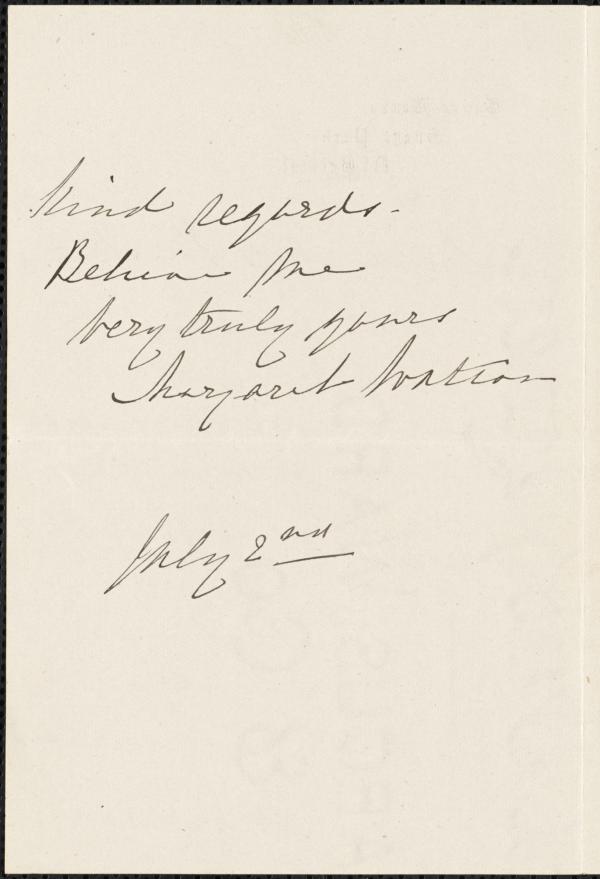 kind regards -
Believe me
very truly yours
Margaret Watson
July 2nd